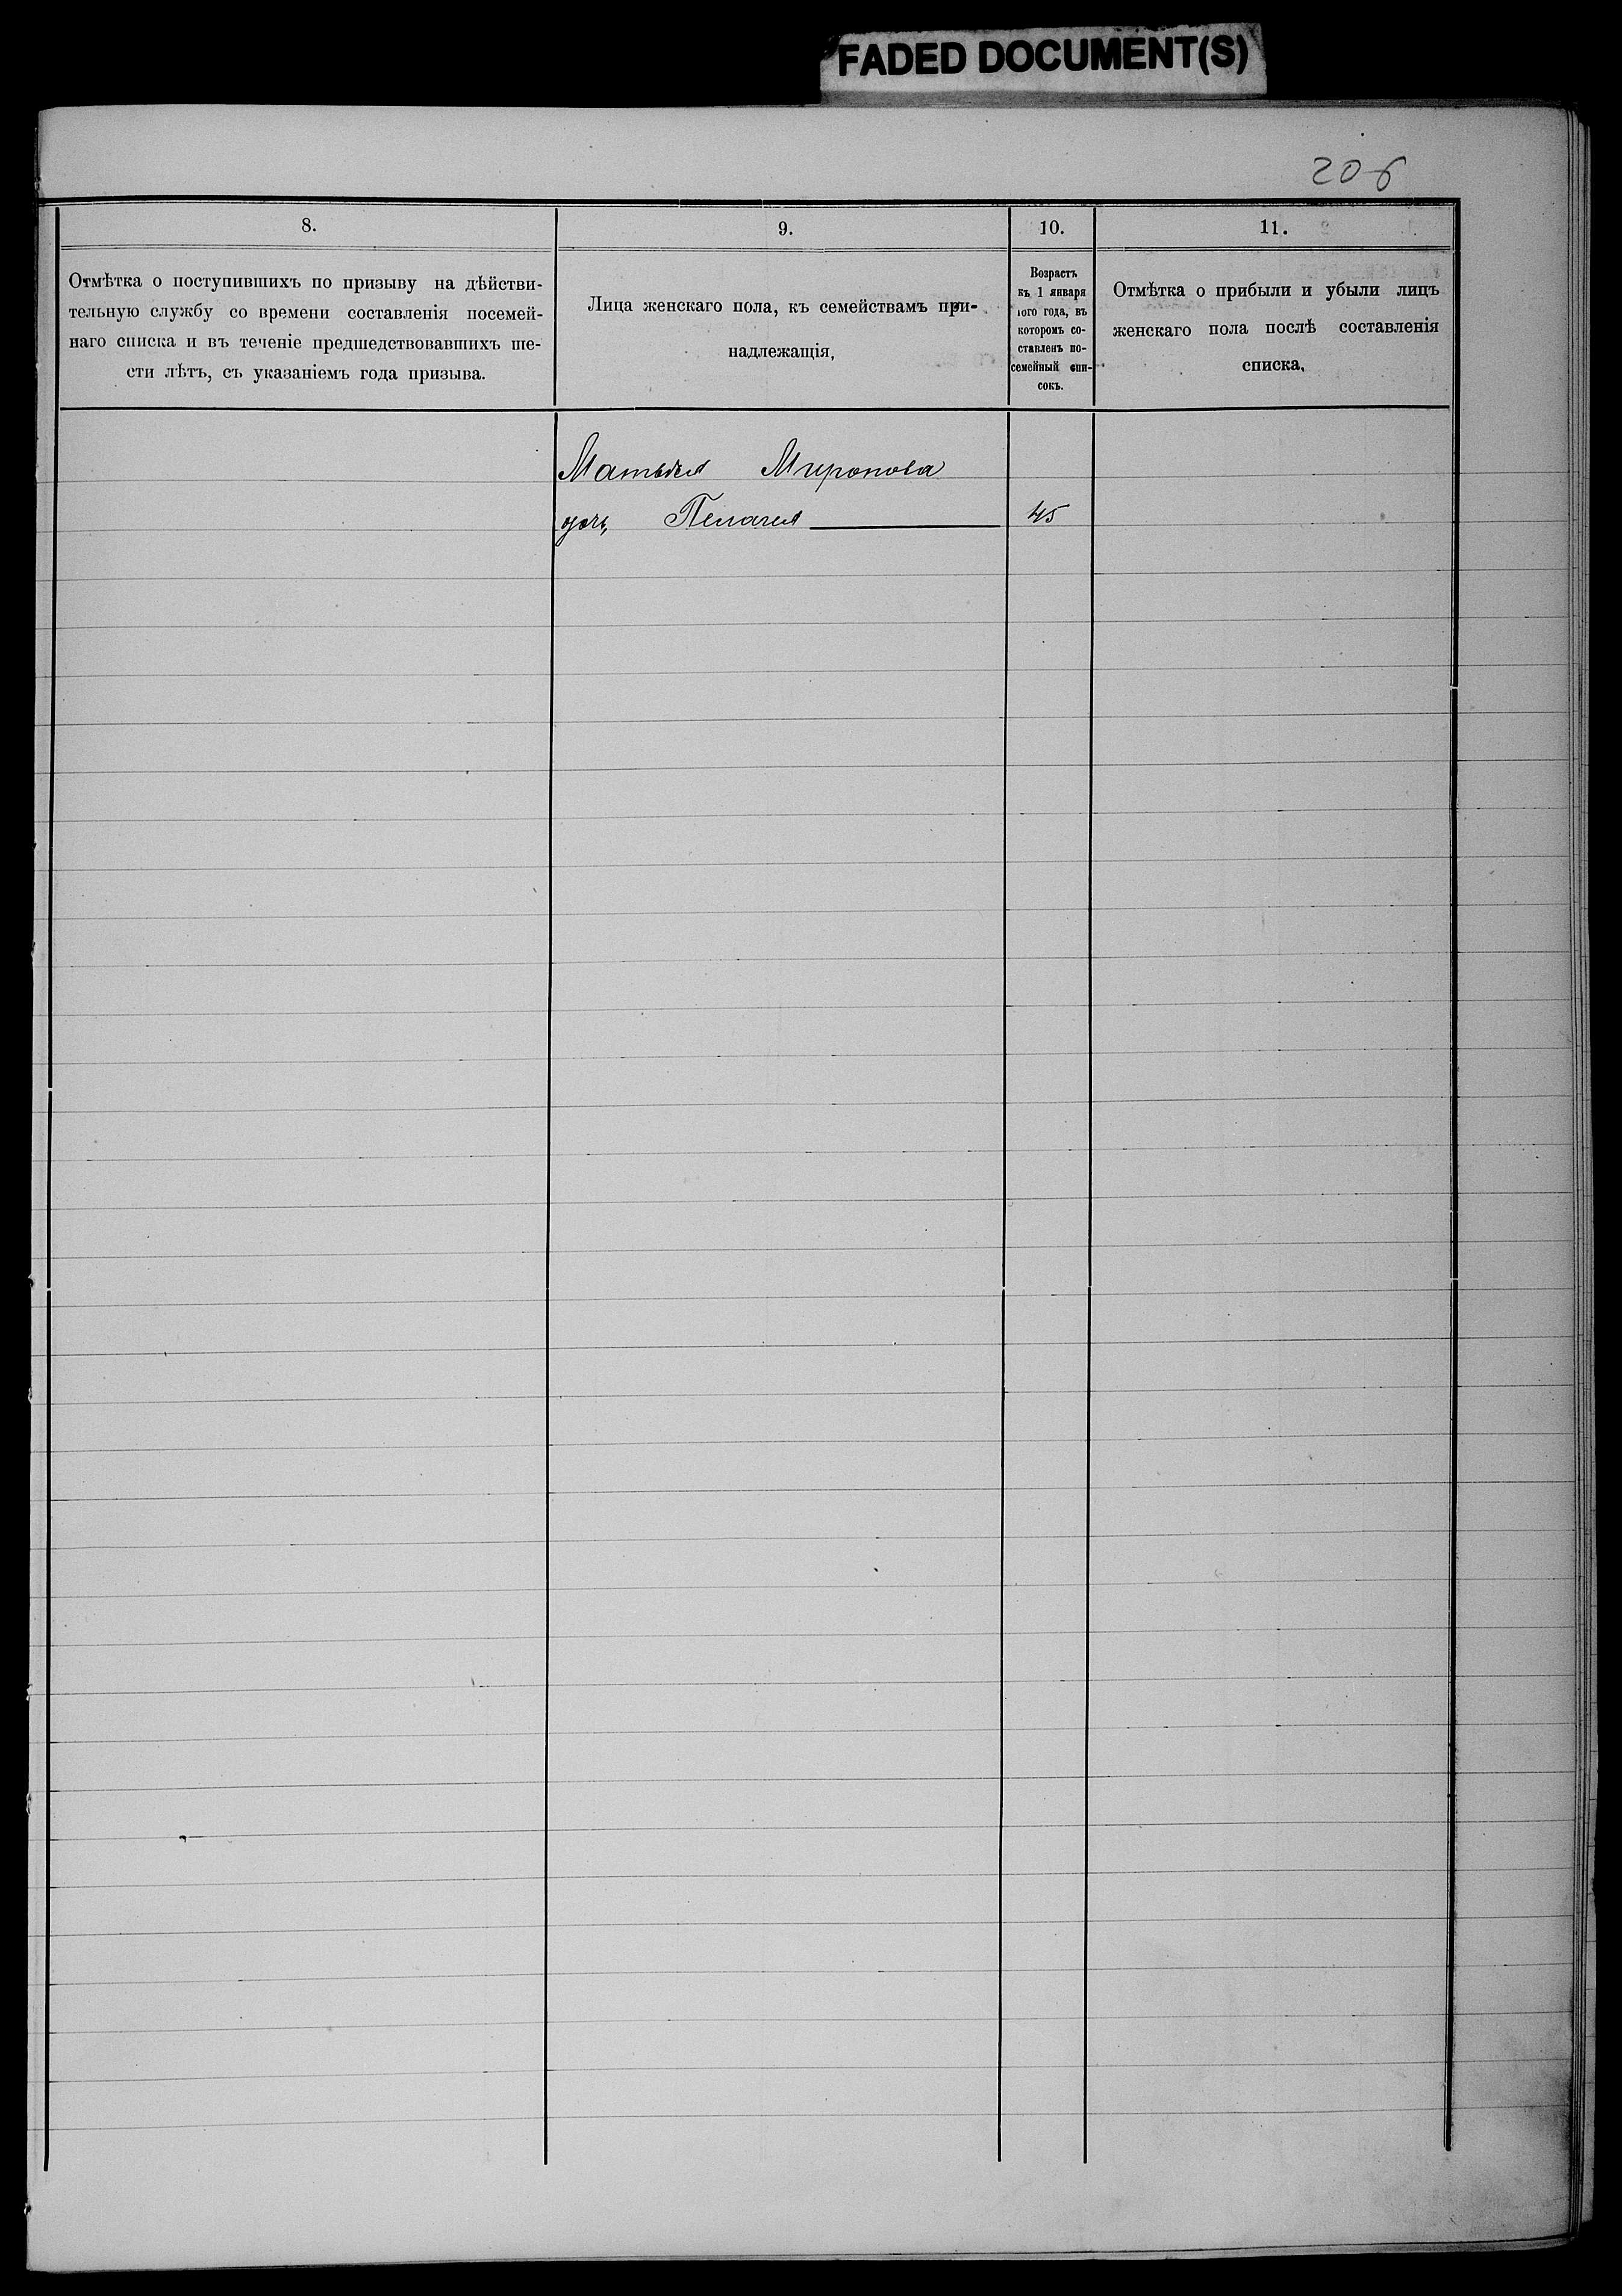 FADED DOCUMENT(S)
206
8.
9.
10.
11.
Отмѣтка о поступившихъ по призыву на дѣйстви-
тельную службу со времени составленія посемей-
наго списка и въ теченіе предшедствовавшихъ ше-
сти лѣтъ, съ указаніемъ года призыва.
Лица женскаго пола, къ семействамъ при-
надлежащія,
Возрастъ
къ 1 января
того года, въ
которомъ со-
ставленъ по-
семейный спи-
сокъ.
Отмѣтка о прибыли и убыли лицъ
женскаго пола послѣ составленія
списка,
Матвѣя Миронова
дочь, Пелагея 45